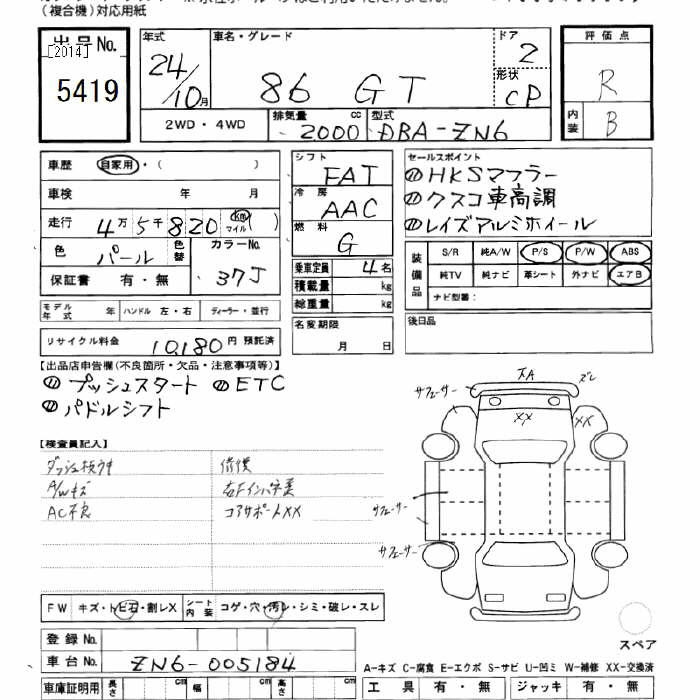 (複合機)対応用紙
出品No.
[2014]
5419
年式
24/10月
車名・グレード
86 GT
ドア
2
形状
CP
評価点
R
内装
B
2WD・4WD
排気量
2000 cc
型式
DBA-ZN6
車歴
自家用・( )
車検 年 月
走行
4万5千820 km マイル( )
色
パール
色替
カラーNo.
37J
保証書 有・無
シフト
FAT
冷房
AAC
燃料
G
乗車定員 4名
積載量 kg
総重量 kg
セールスポイント
HKSマフラー
クスコ車高調
レイズアルミホイール
装備品
S/R 純A/W P/S P/W ABS
純TV 純ナビ 革シート 外ナビ エアB
ナビ型番:
モデル年式 年 ハンドル 左・右 ディーラー・並行
名変期限
月 日
後日品
リサイクル料金 10,180円 預託済
【出品店申告欄(不良箇所・欠品・注意事項等)】
プッシュスタート ETC
パドルシフト
【検査員記入】
A/Wキズ
AC不良
修復
コアサポートXX
XA
ズレ
XX
XX
FW キズ・トビ石・割レX
シート内装 コゲ・穴・汚レ・シミ・破レ・スレ
スペア
登録No.
車台No. ZN6-005184
A-キズ C-腐食 E-エクボ S-サビ U-凹ミ W-補修 XX-交換済
車庫証明用 長さ cm 幅 cm 高さ cm
工具 有・無 ジャッキ 有・無